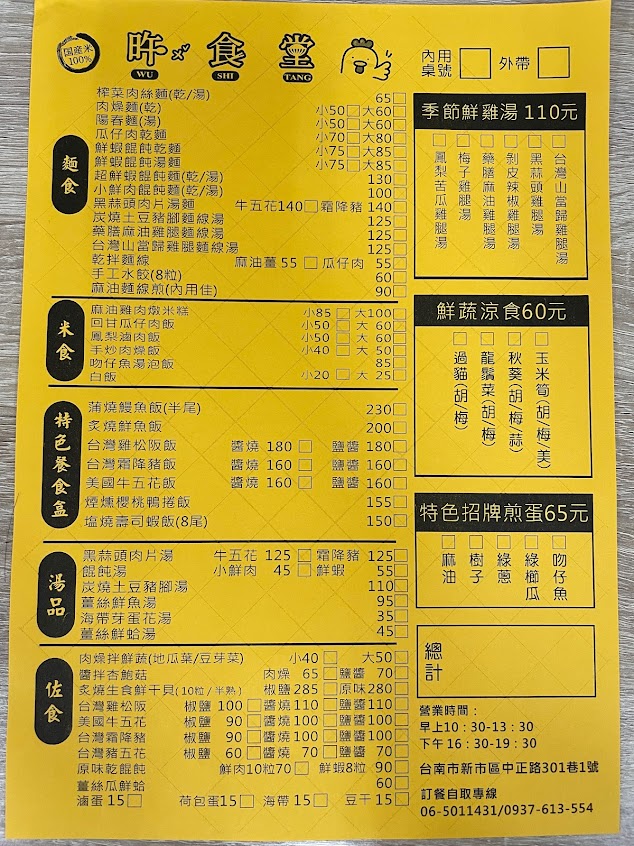 国産米
100%
旿食堂
WU SHI TANG
內用
桌號 外帶
麵食
榨菜肉絲麵(乾/湯) 65
肉燥麵(乾) 小50 大60
陽春麵(湯) 小50 大60
瓜仔肉乾麵 小70 大80
鮮蝦餛飩乾麵 小75 大85
鮮蝦餛飩湯麵 小75 大85
超鮮蝦餛飩麵(乾/湯) 130
小鮮肉餛飩麵(乾/湯) 100
黑蒜頭肉片湯麵 牛五花140 霜降豬 140
炭燒土豆豬腳麵線湯 125
藥膳麻油雞腿麵線湯 125
台灣山當歸雞腿麵線湯 125
乾拌麵線 麻油薑 55 瓜仔肉 55
手工水餃(8粒) 60
麻油麵線煎(內用佳) 90
米食
麻油雞肉燉米糕 小85 大100
回甘瓜仔肉飯 小50 大 60
鳳梨滷肉飯 小50 大 60
手炒肉燥飯 小40 大 50
吻仔魚湯泡飯 85
白飯 小20 大 25
特色餐食盒
蒲燒鰻魚飯(半尾) 230
炙燒鮮魚飯 200
台灣雞松阪飯 醬燒 180 鹽醬 180
台灣霜降豬飯 醬燒 160 鹽醬 160
美國牛五花飯 醬燒 160 鹽醬 160
煙燻櫻桃鴨捲飯 155
塩燒壽司蝦飯(8尾) 150
湯品
黑蒜頭肉片湯 牛五花 125 霜降豬 125
餛飩湯 小鮮肉 45 鮮蝦 55
炭燒土豆豬腳湯 110
薑絲鮮魚湯 95
海帶芽蛋花湯 35
薑絲鮮蛤湯 45
佐食
肉燥拌鮮蔬(地瓜葉/豆芽菜) 小40 大50
醬拌杏鮑菇 肉燥 65 鹽醬 70
炙燒生食鮮干貝(10粒/半熟) 椒鹽285 原味280
台灣雞松阪 椒鹽 100 醬燒110 鹽醬110
美國牛五花 椒鹽 90 醬燒100 鹽醬100
台灣霜降豬 椒鹽 90 醬燒100 鹽醬100
台灣豬五花 椒鹽 60 醬燒 70 鹽醬 70
原味乾餛飩 鮮肉10粒70 鮮蝦8粒 90
薑絲瓜鮮蛤 60
滷蛋 15 荷包蛋15 海帶 15 豆干 15
季節鮮雞湯 110元
台灣山當歸雞腿湯
黑蒜頭雞腿湯
剝皮辣椒雞腿湯
藥膳麻油雞腿湯
梅子雞腿湯
鳳梨苦瓜雞腿湯
鮮蔬涼食60元
玉米筍(胡/梅/美)
秋葵(胡/梅/蒜)
龍鬚菜(胡/梅)
過貓(胡/梅)
特色招牌煎蛋65元
吻仔魚
綠櫛瓜
綠蔥
樹子
麻油
總計
營業時間：
早上10：30-13：30
下午16：30-19：30
台南市新市區中正路301巷1號
訂餐自取專線
06-5011431/0937-613-554